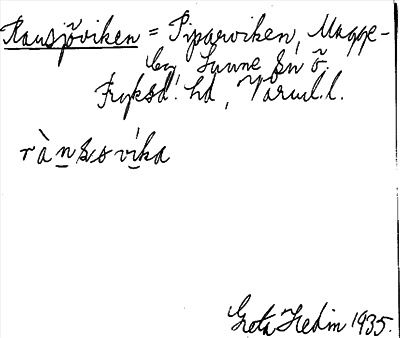 Ransjöviken = Piparviken, Magge-
by, Sunne sn ö.
Fryksd. hd, Värml. l.
rànsso vika
Greta Hedin 1935.